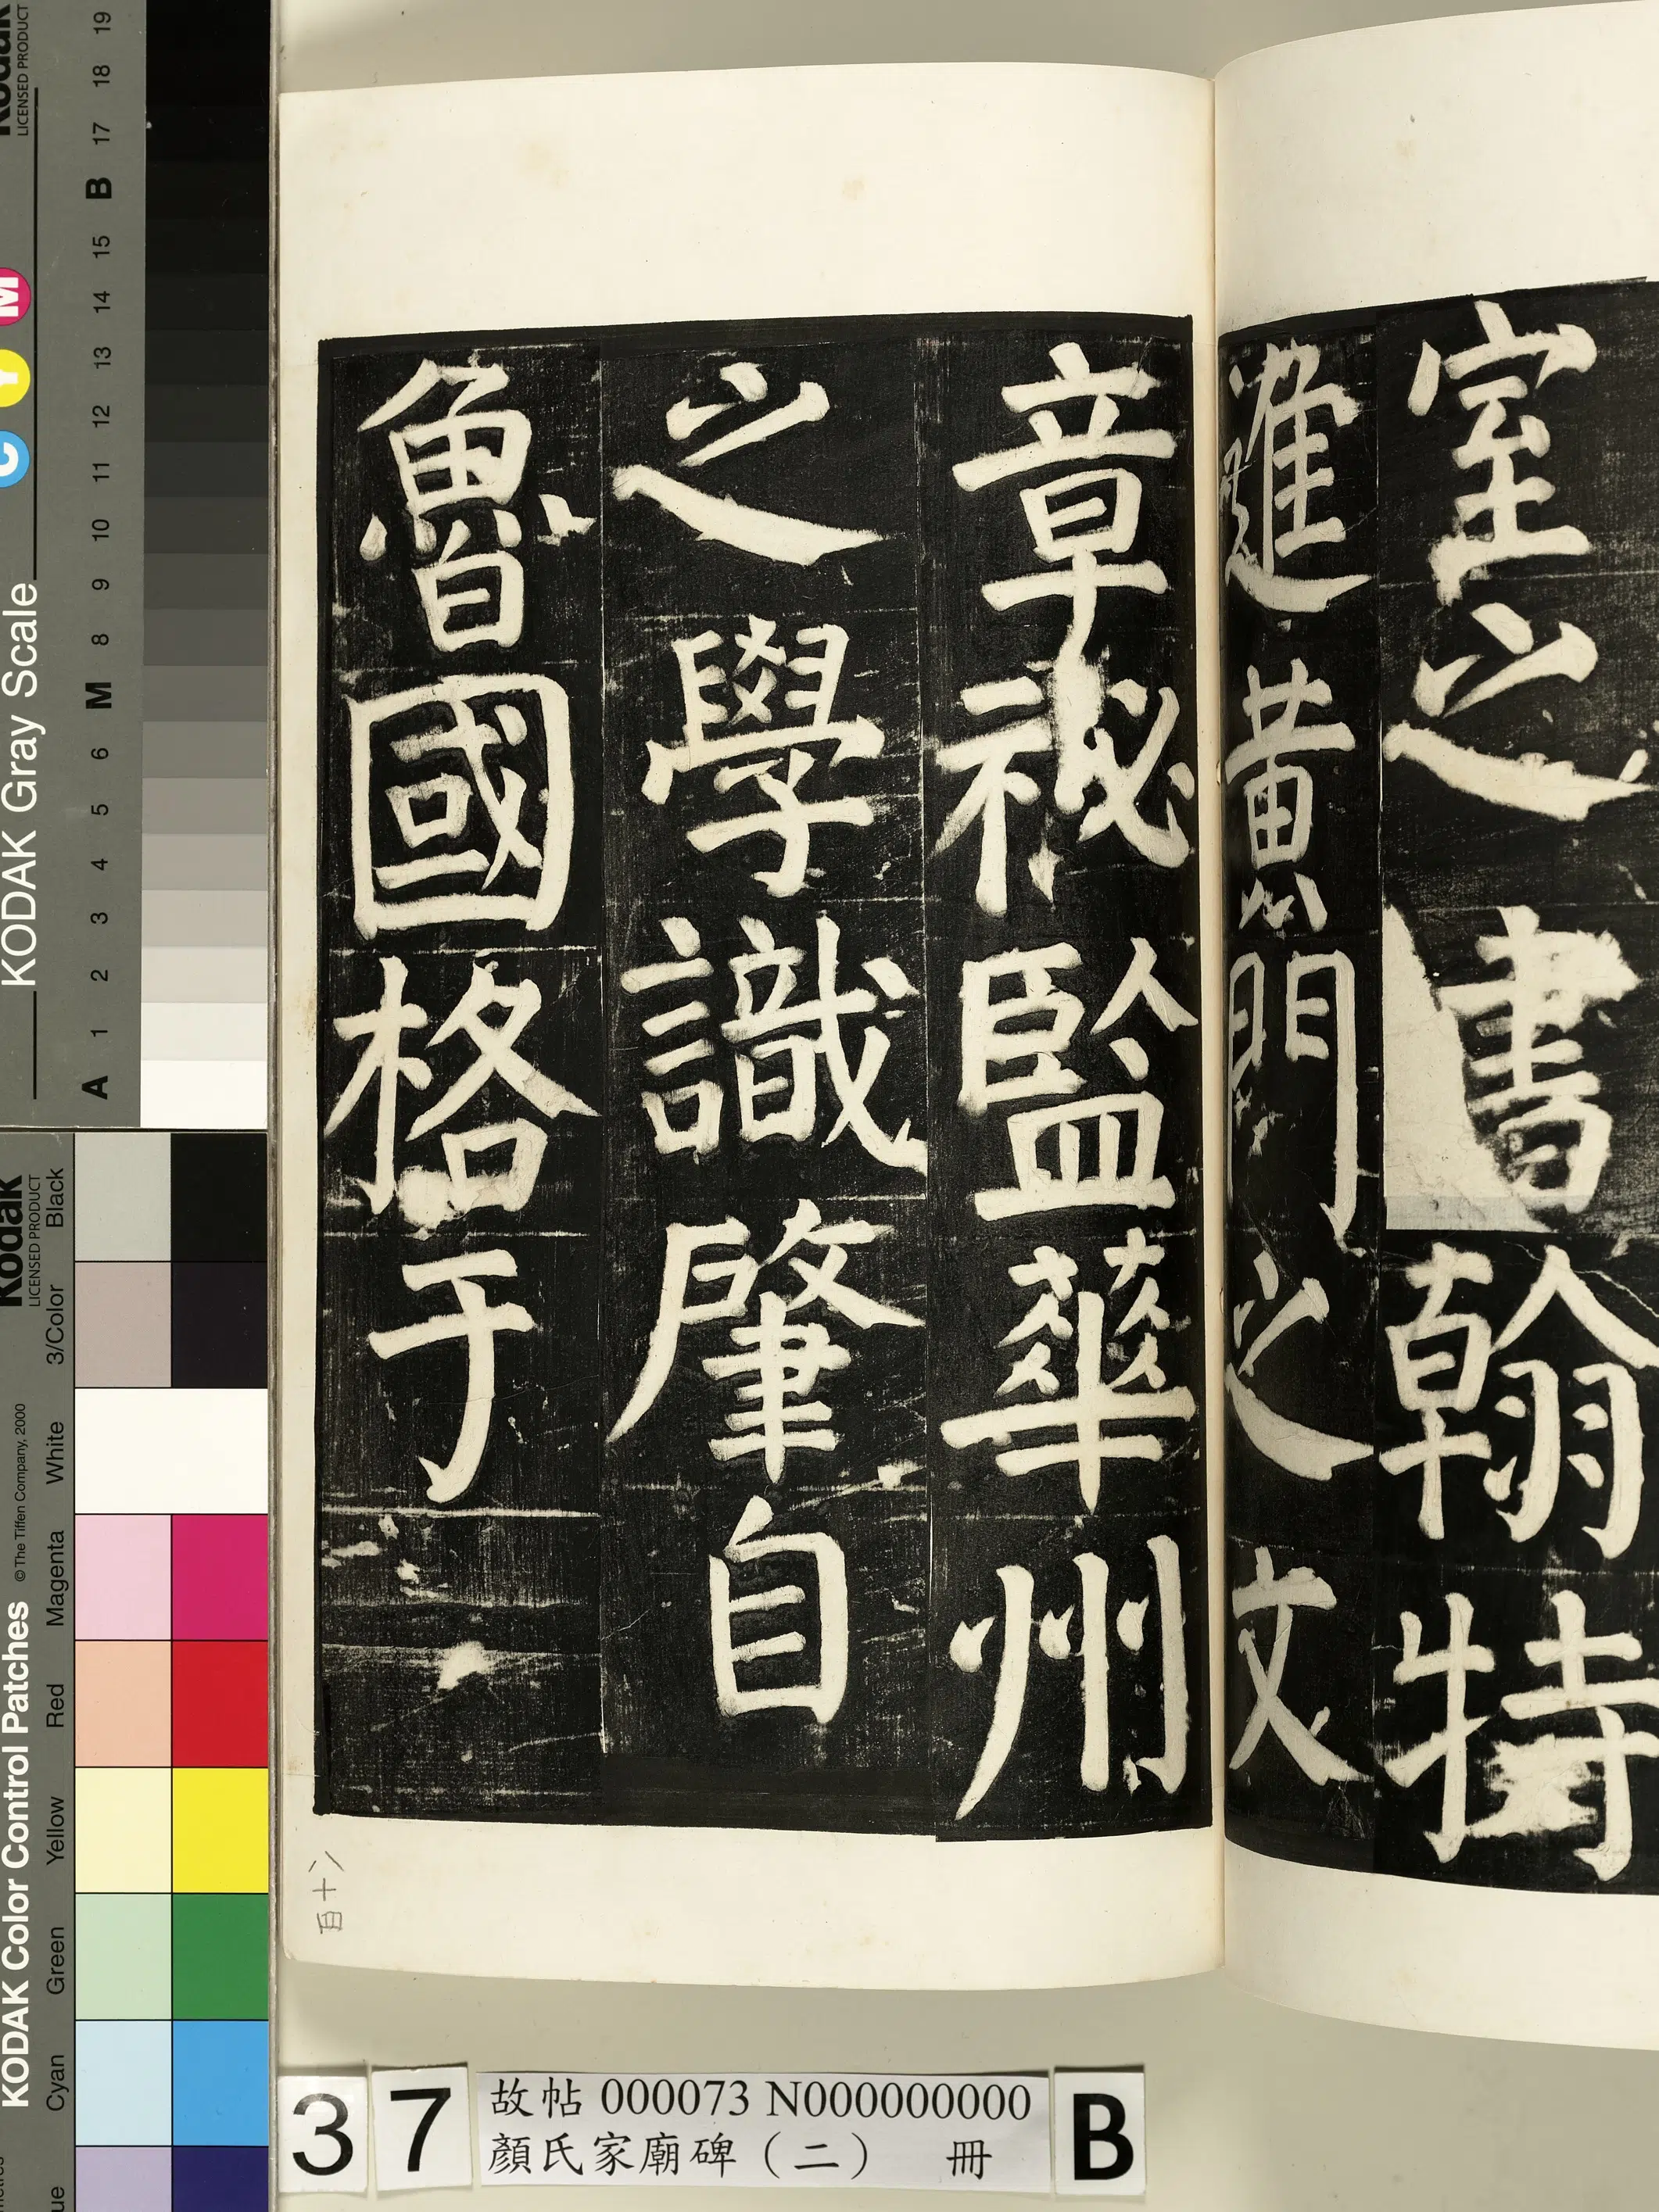 室之書翰特
進黃門之文
章秘監華州
之學識肇自
魯國格于
百十八
37
故帖 000073 N000000000
顏氏家廟碑（二） 冊
B
Kodak
LICENSED PRODUCT
KODAK Gray Scale
C Y M
A 1 2 3 4 5 6 M 8 9 10 11 12 13 14 15 B 17 18 19
KODAK Color Control Patches
© The Tiffen Company, 2000
Kodak
LICENSED PRODUCT
Cyan Green Yellow Red Magenta White 3/Color Black